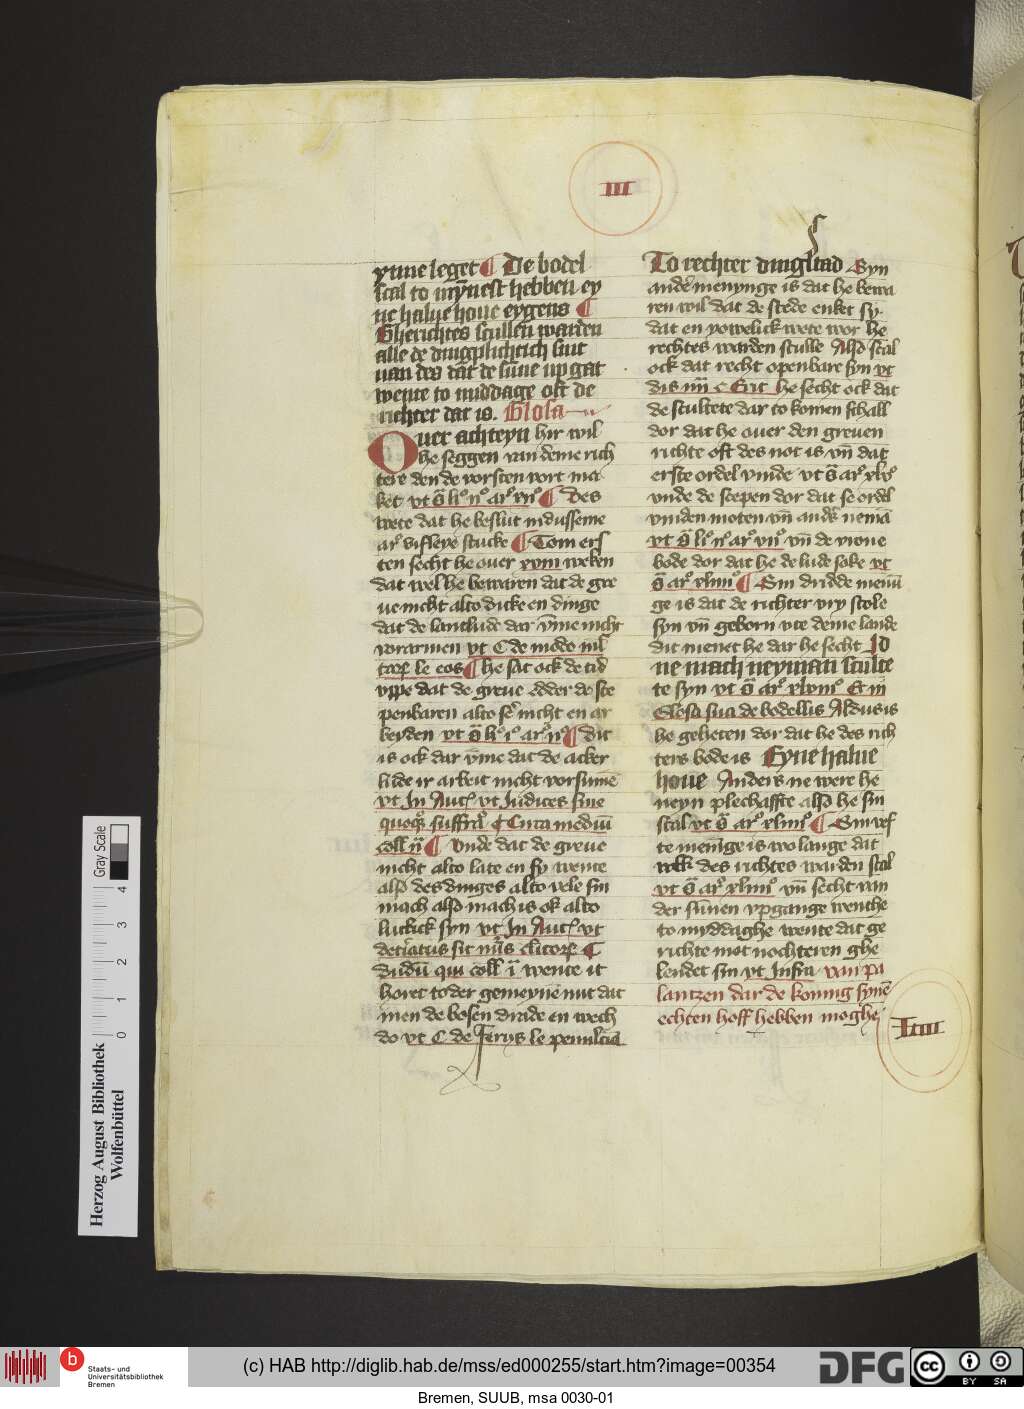 III
yme leget ¶ De bodel
scal to mynest hebben ey
ne halue houe eygens ¶
Gherichtes scullen warden
alle de dingplichtich sint
van des dat de sunne up gat
wente to middage oft de
richter dar is. Glosa
Ouer achteyn hir wil
he seggen van deme rich
tere den de vorsten vort ma
ket vt
¶ Des
wete dat he beslut in dusseme
ar° vifleye stucke ¶ Tom ers
ten secht he ouer xviii weken
dat wel he bewaren dat de gre
ue nicht alto dicke en dinge
dat de lantlude dar v̄me nicht
vorarmen vt C de
le eos ¶ he sat ock de tid
vppe dat de greue edder de sce
penbaren alto se' nicht en ar
beyden vt ¶ dit
is ock dar v̄me dat de acker
lude ir arbeit nicht vorsume
vt In Auct vt Iudices sine
quoq suffra ¶ Circa mediū
coll ii ¶ Vnde dat de greue
nicht alto late en sy wente
also des dinges alto vele sin
mach also mach is ok alto
luttick syn vt In Auct vt
sit
dudū qui coll i wente it
horet to der gemeynē nut dat
men de bosen drade en wech
do vt C de Ferijs le
To rechter dingstad Syn
ander menynge is dat he bewa
ren wil dat de stede enket sy.
dat en yowelick wete wor he
rechtes warden sculle Also scal
ock dat recht openbare syn vt
dis iiii c Erit he secht ock dat
de scultete dar to komen schall
dor dat he ouer den greuen
richte oft des not is vn̄ dat
erste ordel vinde vt ar°
vnde de scepen dor dat se ordel
vinden moten vn̄ ander nemā
vt ar° vn̄ de vrone
bode dor dat he de lude lake vt
ar° xliiii° ¶ Sin dridde menī
ge is dat de richter vry scole
syn vn̄ geborn vte deme lande
dit menet he dar he secht Id
ne mach neyman sculte
te syn vt ar° Et in
Glosa sua de bodellis Aldus is
he geheten dor dat he des rich
ters bode is Eyne halue
houe Anders ne were he
neyn plechaffte also he sin
scal vt ar° xliiii° ¶ Sin vef
te meninge is wo lange dat
des richtes warden scal
vt ar° xliiii° vn̄ secht van
der sunnen vpgange wenthe
to myddaghe wente dat ge
richte mot nochteren ghe
lendet sin vt Infra van pa
lantzen dar de koning synē
echten hoff hebben moghe
Liiii
Herzog August Bibliothek
Wolfenbüttel
0 1 2 3 4
Gray Scale
b
Staats- und
Universitätsbibliothek
Bremen
(c) HAB http://diglib.hab.de/mss/ed000255/start.htm?image=00354
DFG
cc
BY SA
Bremen, SUUB, msa 0030-01